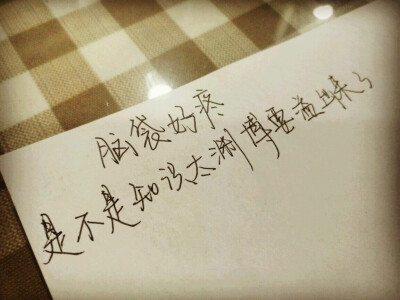 脑袋好疼
是不是知识太渊博要溢出来了